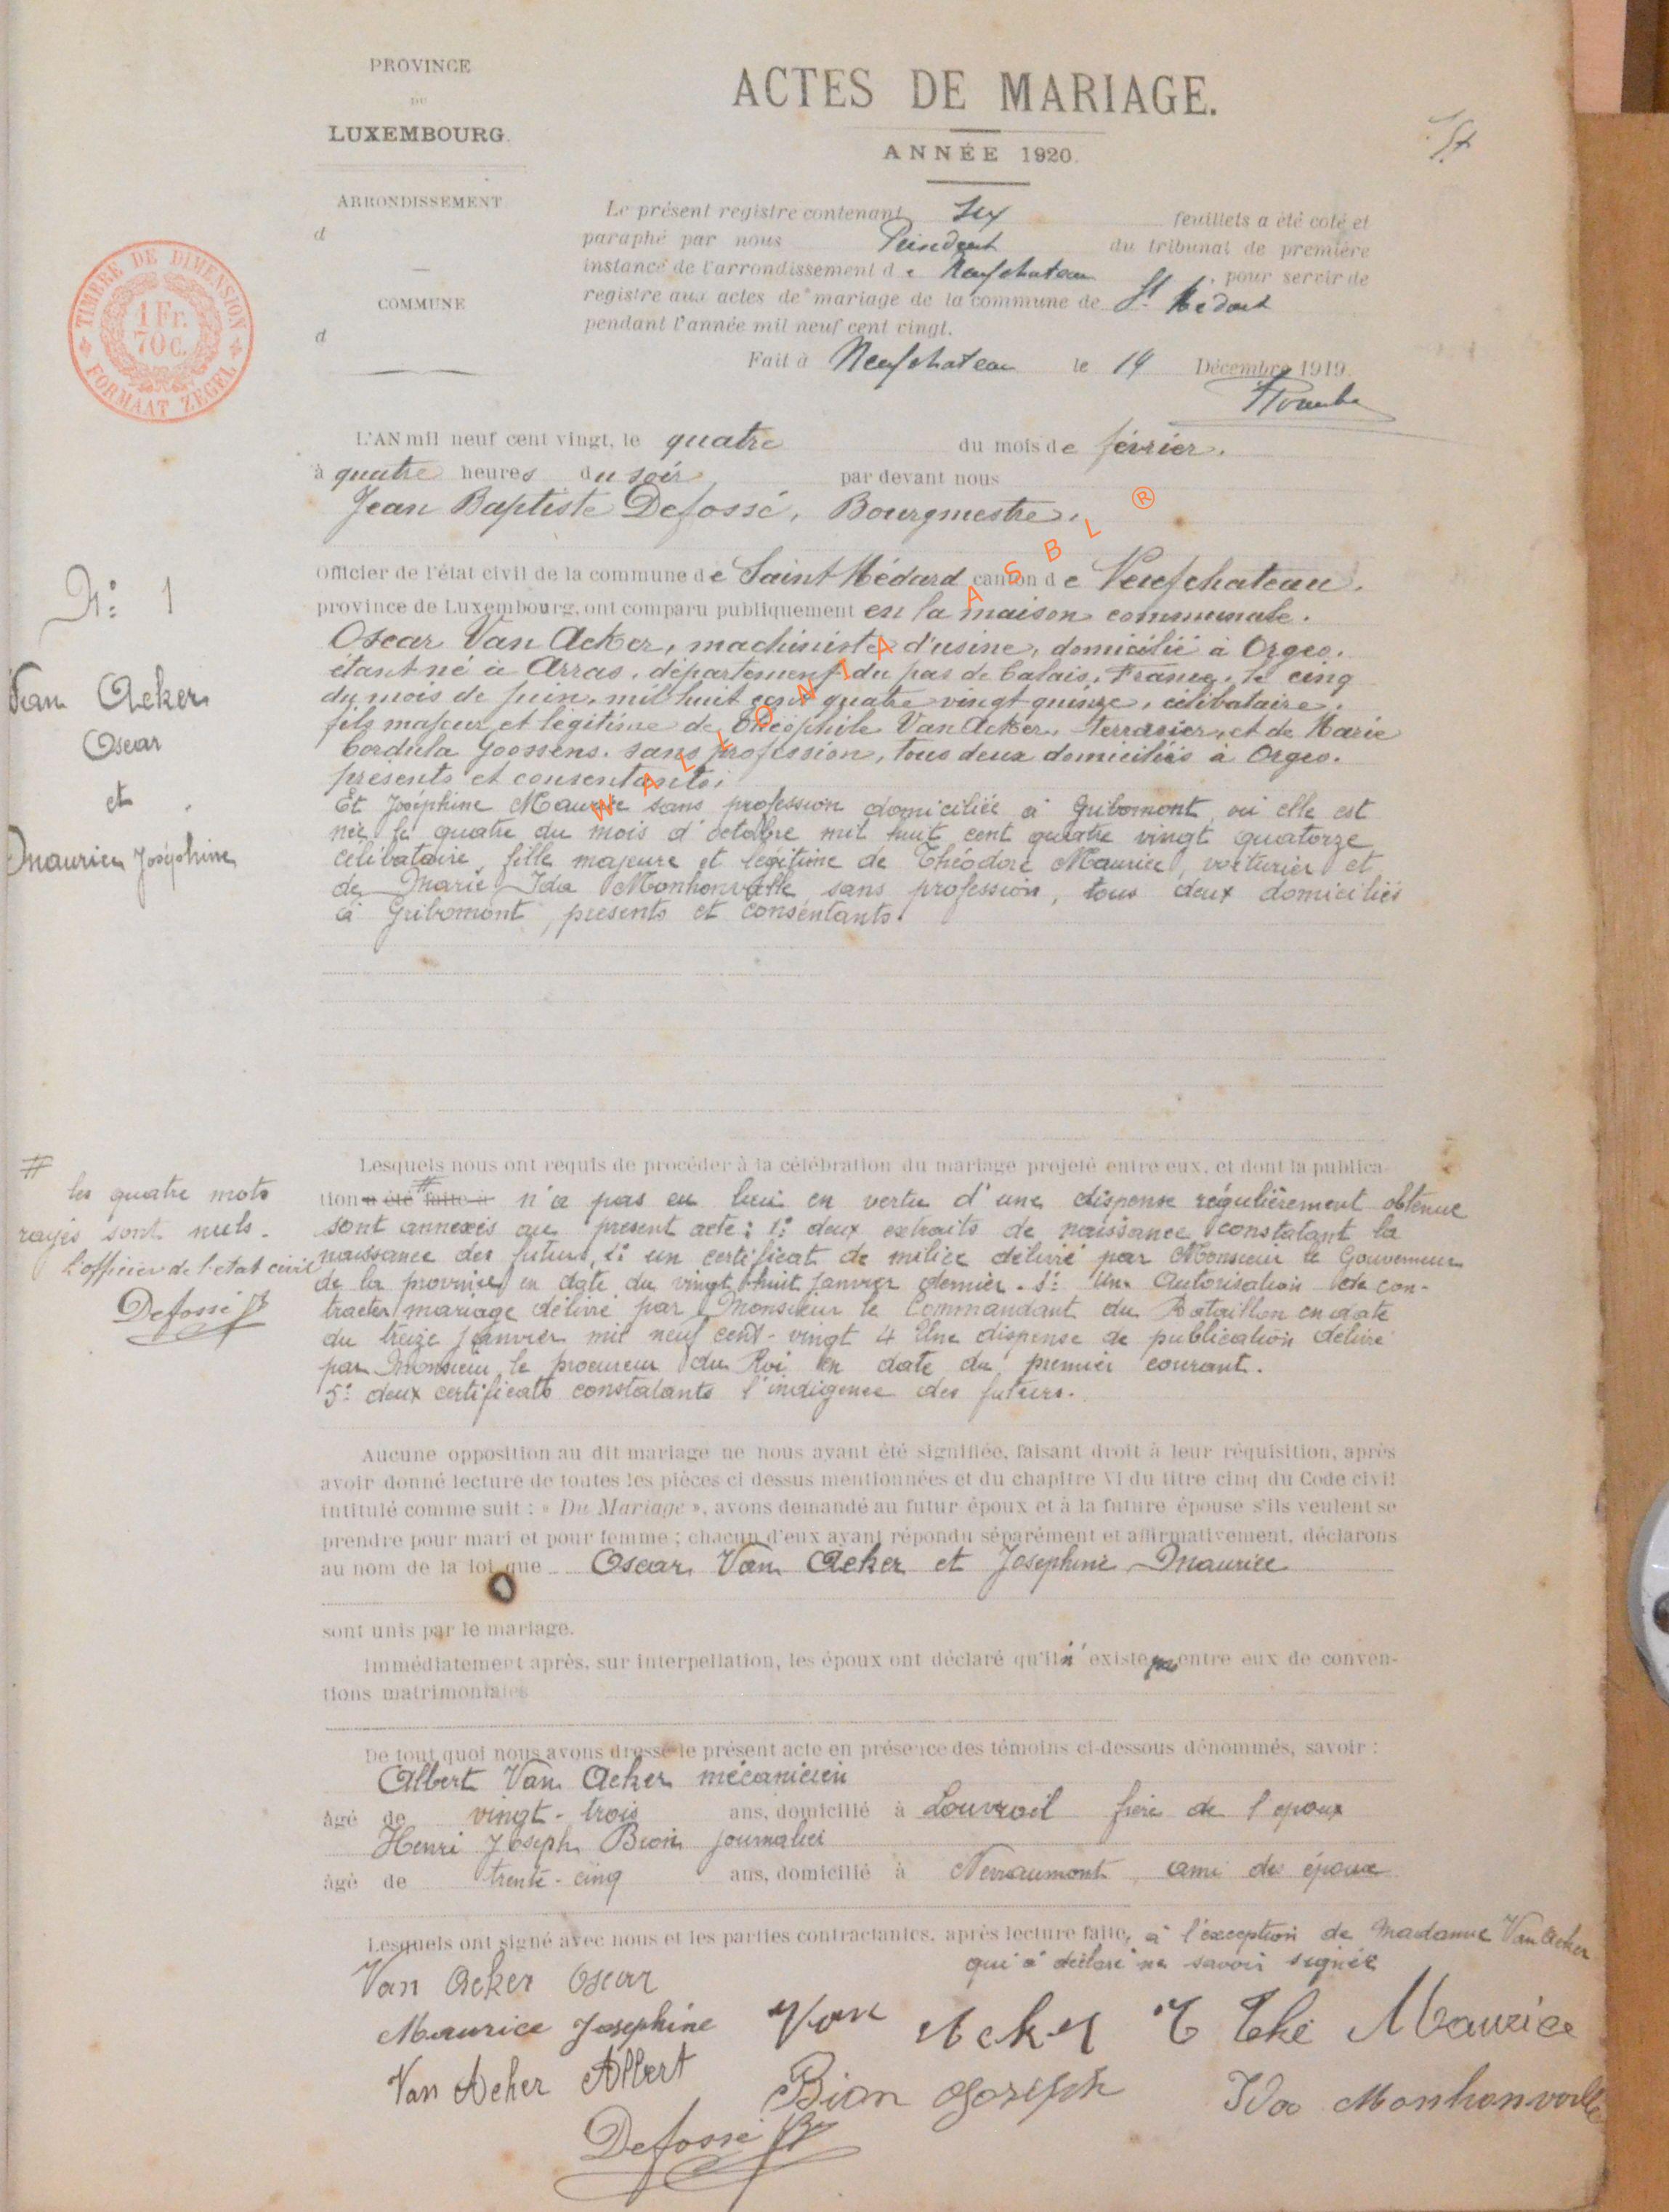 PROVINCE
DU
LUXEMBOURG.
ARRONDISSEMENT
d
COMMUNE
d
TIMBRE DE DIMENSION
1 Fr.
70 C.
FORMAAT ZEGEL
ACTES DE MARIAGE.
ANNÉE 1920.
Le présent registre contenant Six feuillets a été coté et
paraphé par nous Président du tribunal de première
instance de l'arrondissement de Neufchateau, pour servir de
registre aux actes de mariage de la commune de St Médard
pendant l'année mil neuf cent vingt.
Fait à Neufchateau le 14 Décembre 1919.
L'AN mil neuf cent vingt, le quatre du mois de février.
à quatre heures du soir par devant nous
Jean Baptiste Defossé, Bourgmestre,
Officier de l'état civil de la commune de Saint Médard canton de Neufchateau.
province de Luxembourg, ont comparu publiquement en la maison communale.
Oscar Van Acker, machiniste d'usine, domicilié à Orgeo.
étant né à Arras, département du pas de Calais, France, le cinq
du mois de juin, mil huit cent quatre vingt quinze, célibataire,
fils majeur et légitime de Théophile Van Acker, terrasier, et de Marie
Cordula Goossens. sans profession, tous deux domiciliés à Orgeo.
présents et consentants;
Et Joséphine Maurice sans profession domiciliée à Gribomont où elle est
née le quatre du mois d'octobre mil huit cent quatre vingt quatorze
célibataire, fille majeure et légitime de Théodore Maurice, voiturier et
de Marie Ida Monhonvalle sans profession, tous deux domiciliés
à Gribomont, présents et consentants.
N: 1
Van Acker
Oscar
et
Maurice Joséphine
WALLONIA ASBL ®
Lesquels nous ont requis de procéder à la célébration du mariage projeté entre eux, et dont la publica-
tion a été # faite à n'a pas eu lieu en vertu d'une dispense régulièrement obtenue
sont annexés au présent acte: 1: deux extraits de naissance constatant la
naissance des futurs, 2: un certificat de milice délivré par Monsieur le Gouverneur
de la province en date du vingt huit janvier dernier. 3: Une Autorisation de con-
tracter mariage délivré par Monsieur le Commandant du Bataillon en date
du treize janvier mil neuf cent-vingt 4 Une dispense de publication délivré
par Monsieur le procureur du Roi en date du premier courant.
5: deux certificats constatants l'indigence des futurs.
#
les quatre mots
rayés sont nuls.
l'officier de l'état civil
Defossé JB
Aucune opposition au dit mariage ne nous ayant été signifiée, faisant droit à leur réquisition, après
avoir donné lecture de toutes les pièces ci dessus mentionnées et du chapitre VI du titre cinq du Code civil
intitulé comme suit : « Du Mariage », avons demandé au futur époux et à la future épouse s'ils veulent se
prendre pour mari et pour femme ; chacun d'eux ayant répondu séparément et affirmativement, déclarons
au nom de la loi que Oscar Van Acker et Joséphine Maurice
sont unis par le mariage.
Immédiatement après, sur interpellation, les époux ont déclaré qu'il n'existe pas entre eux de conven-
tions matrimoniales
De tout quoi nous avons dressé le présent acte en présence des témoins ci-dessous dénommés, savoir :
Albert Van Acker mécanicien
âgé de vingt-trois ans, domicilié à Louvroil frère de l'époux
Henri Joseph Bion journalier
âgé de trente-cinq ans, domicilié à Nevraumont ami des époux
Lesquels ont signé avec nous et les parties contractantes, après lecture faite, à l'exception de Madame Van Acker
qui a déclaré ne savoir signer
Van Acker Oscar
Maurice Joséphine Van Acker T Thé Maurice
Van Acker Albert Bion Joseph Ida Monhonvalle
Defossé JB